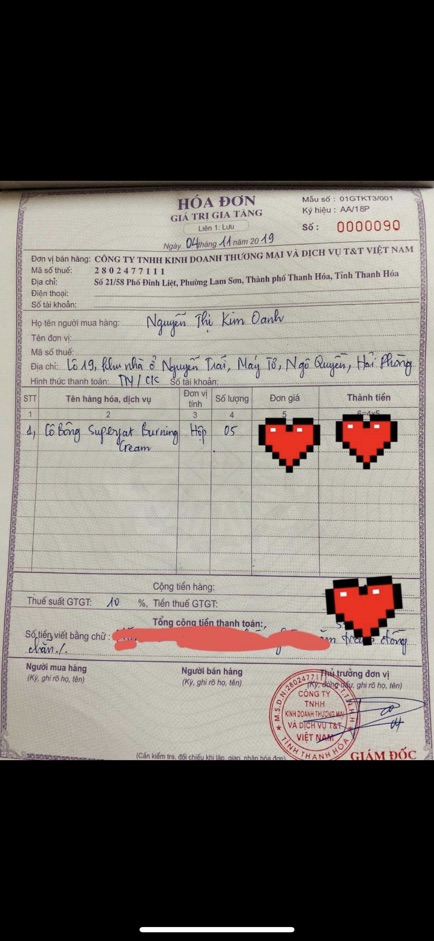 HÓA ĐƠN
GIÁ TRỊ GIA TĂNG
Liên 1: Lưu
Ngày 04 tháng 11 năm 2019
Mẫu số : 01GTKT3/001
Ký hiệu : AA/18P
Số : 0000090
Đơn vị bán hàng: CÔNG TY TNHH KINH DOANH THƯƠNG MẠI VÀ DỊCH VỤ T&T VIỆT NAM
Mã số thuế: 2 8 0 2 4 7 7 1 1 1
Địa chỉ: Số 21/58 Phố Đinh Liệt, Phường Lam Sơn, Thành phố Thanh Hóa, Tỉnh Thanh Hóa
Điện thoại:
Số tài khoản:
Họ tên người mua hàng: Nguyễn Thị Kim Oanh
Tên đơn vị:
Mã số thuế:
Địa chỉ: Lô 19, khu nhà ở Nguyễn Trãi, Máy Tơ, Ngô Quyền, Hải Phòng
Hình thức thanh toán: TM / CK Số tài khoản:
STT Tên hàng hóa, dịch vụ Đơn vị tính Số lượng Đơn giá Thành tiền
1 2 3 4 5 6=4x5
1, Cô Bông Superfat Burning Cream Hộp 05
Cộng tiền hàng:
Thuế suất GTGT: 10 %, Tiền thuế GTGT:
Tổng cộng tiền thanh toán:
Số tiền viết bằng chữ : đồng
chẵn./.
Người mua hàng Người bán hàng Thủ trưởng đơn vị
(Ký, ghi rõ họ, tên) (Ký, ghi rõ họ, tên) (Ký, đóng dấu, ghi rõ họ, tên)
CÔNG TY
TNHH
KINH DOANH THƯƠNG MẠI
VÀ DỊCH VỤ T&T
VIỆT NAM
TỈNH THANH HÓA
GIÁM ĐỐC
(Cần kiểm tra, đối chiếu khi lập, giao, nhận hóa đơn)